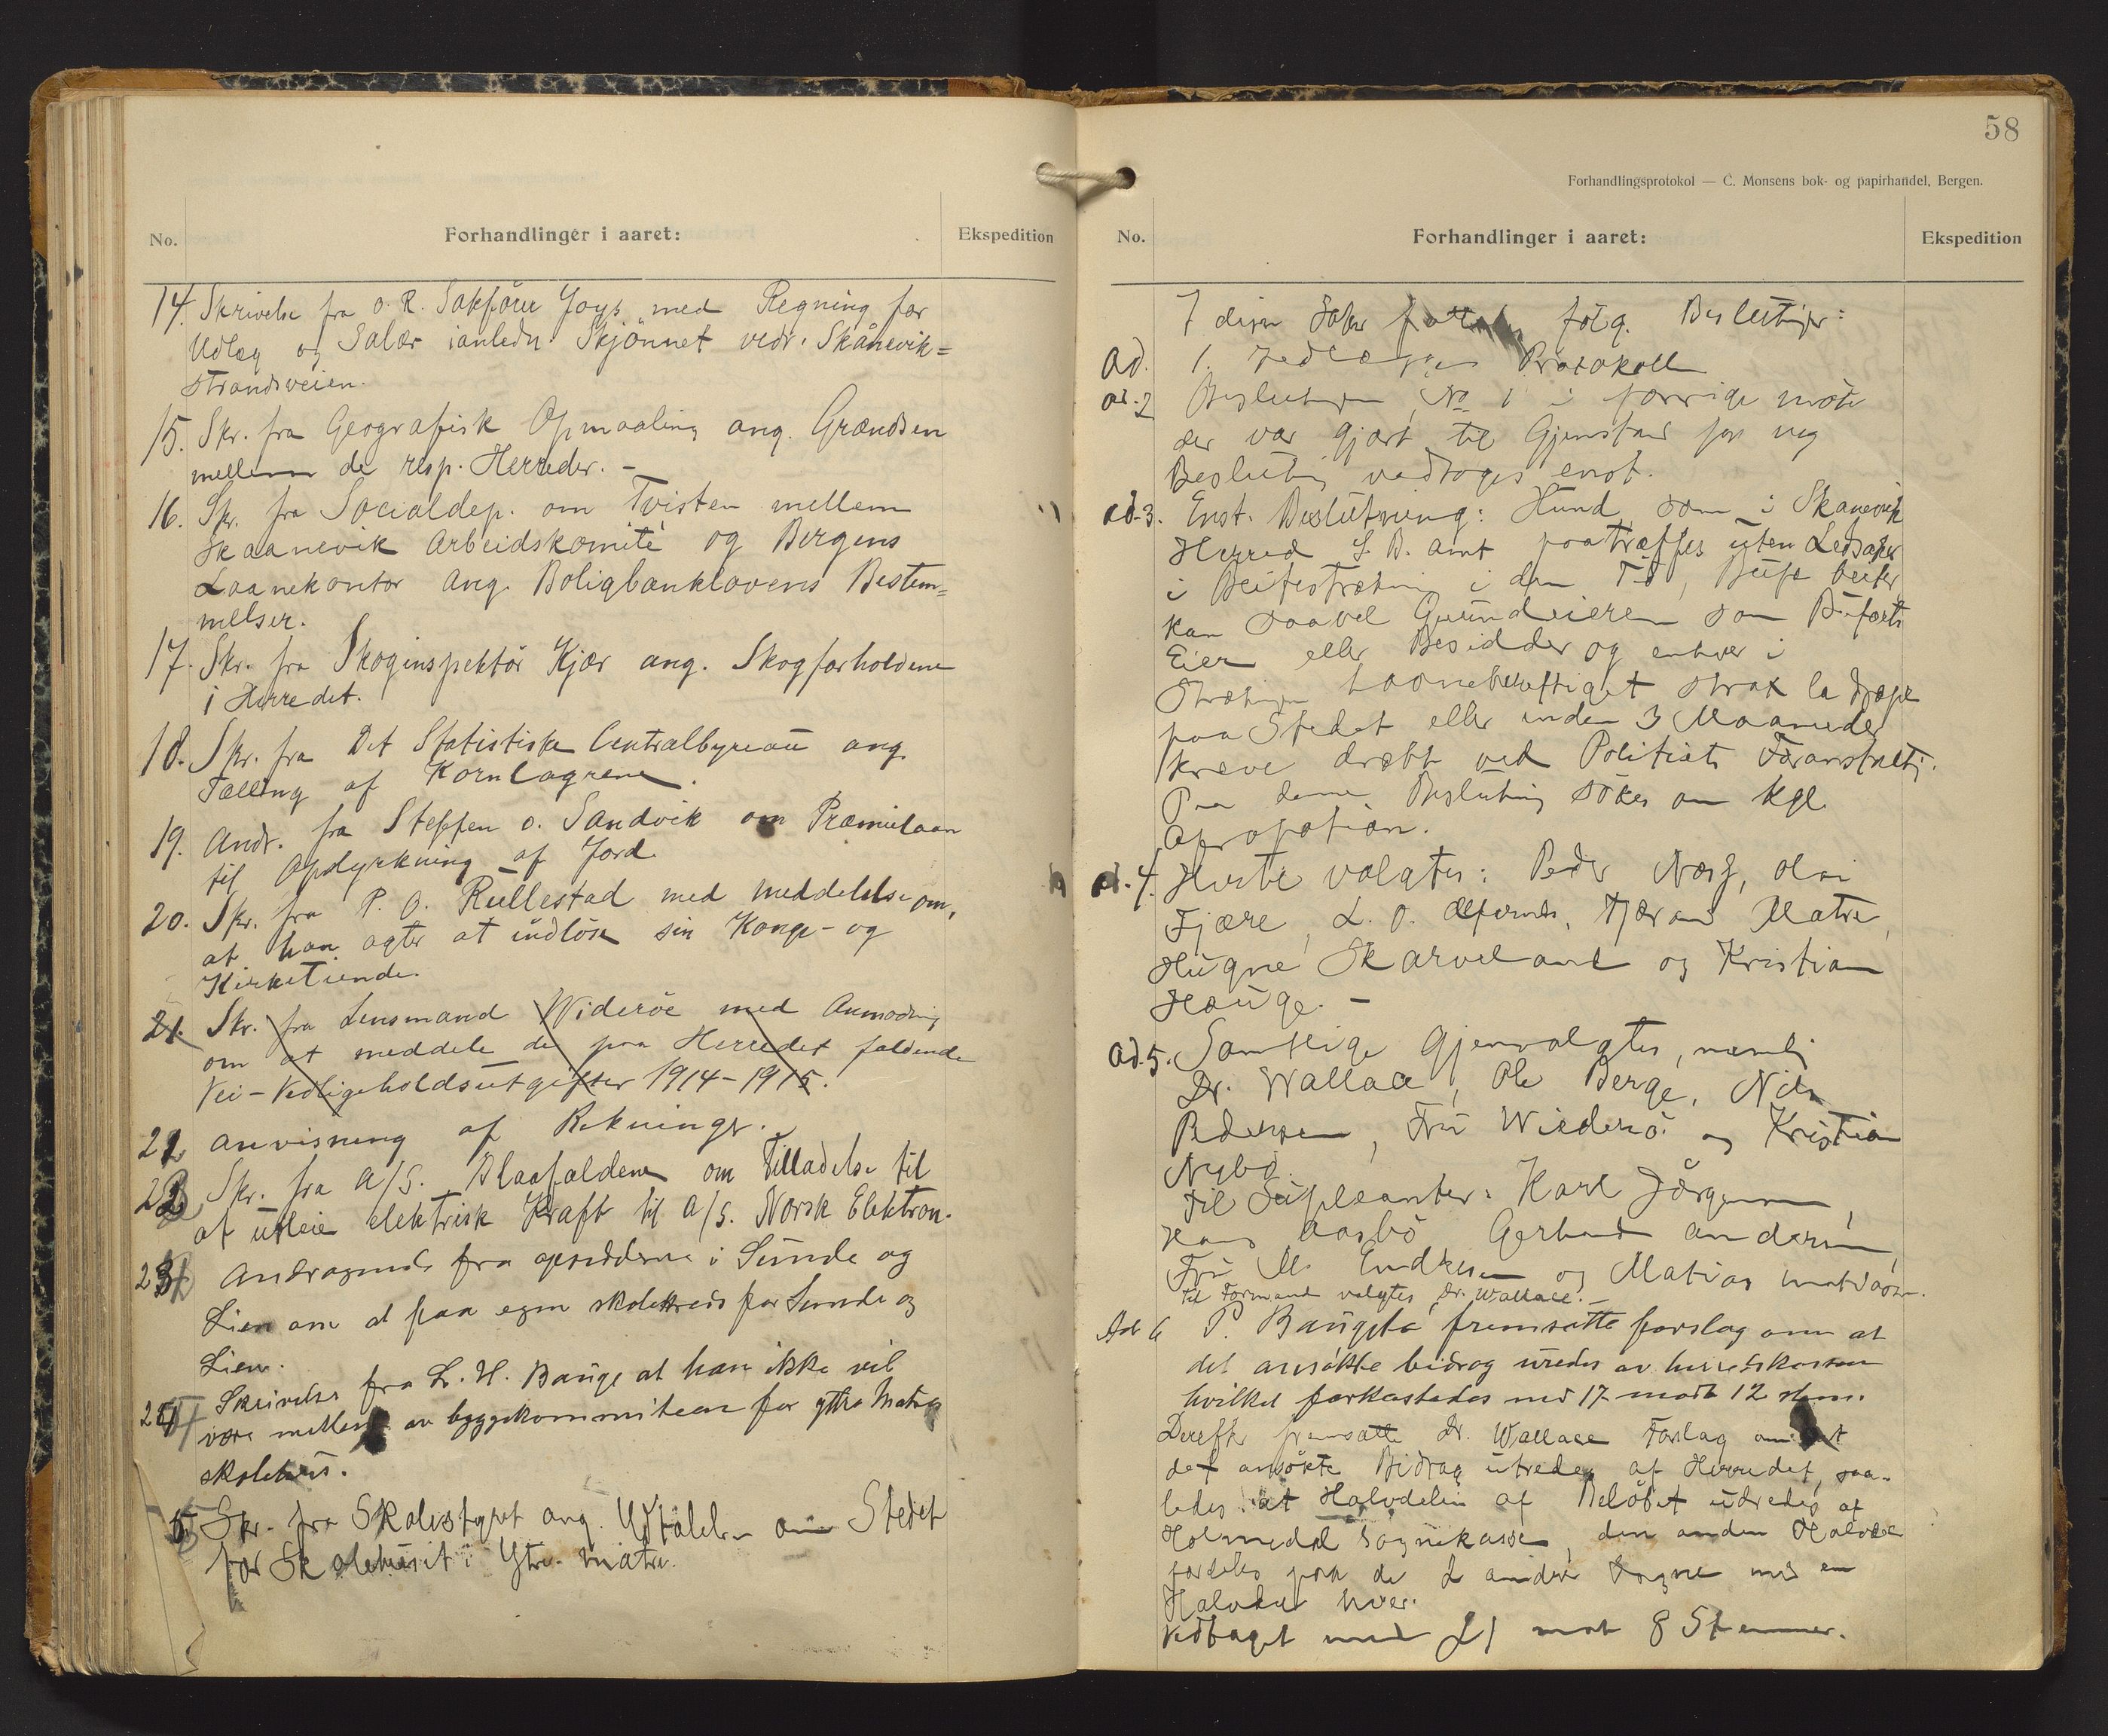 No.
Forhandlinger i aaret:
Ekspedition
14. Skrivelse fra O.R. Sakförer Joys med Regning for
Udlæg og Salær ianledn. Skjönnet vedr. Skånevik=
strandsveien.
15. Skr. fra Geografisk Opmaaling ang. Grændsen
mellem de resp. Herreder. –
16. Skr. fra Socialdep. om Tvisten mellem
Skaanevik Arbeidskomité og Bergens
Laanekontor ang. Boligbanklovens Bestem=
melser.
17. Skr. fra Skoginspektör Kjær ang. Skogforholdene
i Herredet.
18. Skr. fra Det Statistiske Centralbyreau ang.
Tælling af Kornlagrene.
19. Andr. fra Steffen O. Sandvik om Præmielaan
til Opdyrkning af Jord.
20. Skr. fra P. O. Rullestad med meddelelse om,
at han agter at indlöse sin Konge- og
Kirketiende.
21. Skr. fra Lensmand Wideröe med Anmodning
om at meddele de paa Herredet faldende
Vei-Vedligeholdsutgifter 1914-1915.
21 Anvisning af Rekninger.
22 Skr. fra A/S. Blaafaldene om Tilladelse til
at utleie elektrisk Kraft til A/S. Norsk Elektron.
23 Andragende fra opsidderne i Sunde og
Lien om at faa egen skolekreds for Sunde og
Lien.
24 Skrivelse fra L. H. Bauge at han ikke vil
være mellem av byggekommiteen for yttre Matre
skolehus.
5 Skr. fra Skolestyret ang. Udtalelse om Stedet
for Skolehuset i Ytre Matre.
58
Forhandlingsprotokol — C. Monsens bok- og papirhandel, Bergen.
No.
Forhandlinger i aaret:
Ekspedition
I disse Saker fölg. Beslutninger:
Ad. 1. Vedlægges Protokollen
ad. 2 Beslutningen No 1 i forrige möte
der var gjort til Gjenstand for ny
Beslutning vedtoges enst.
ad. 3. Enst. Beslutning: Hund som i Skanevik
Herred S. B. Amt paatræffes uten Ledsager
i Beitestrækning i den Tid, Bufe beiter,
kan saavel Grundeieren som Bufæets
Eier eller Besidder og enhver i
Strækningen strax la dræpe
paa Stedet eller inden 3 Maaneder
kræve dræbt ved Politiets Foranstaltn.
Paa denne Beslutning sökes om kgl.
Aprobation.
ad. 4. valgtes: Peder Næss, Olai
Fjære, L. O. Tjæran Matre,
Hugne Skarveland og Kristian
Hauge. –
ad. 5. Samtlige gjenvalgtes, nemlig
Dr. Wallace, Ole Berge, Nils
Pedersen, Fru Wiederö og Kristian
Nybö.
Til Supleanter: Karl Jörgensen,
Hans Aasbö Gerhard Andersen,
Fru M. Endresen og Matias
Til Formand valgtes Dr. Wallace. –
Ad 6 P. Baugstö fremsatte forslag om at
det ansökte bidrag uredes av herredskassen
hvilket forkastedes med 17 modt 12 stem.
Derefter fremsatte Dr. Wallace Forslag om at
det ansökte Bidrag utredes af Herredet, saa-
ledes at Halvdelen af Belöbet udredes af
Holmedal Sognekasse, den anden Halvdel
fordeles paa de 2 andre Sogne med en
Halvdel hver.
Vedtaget med 21 mot 8 Stemmer.